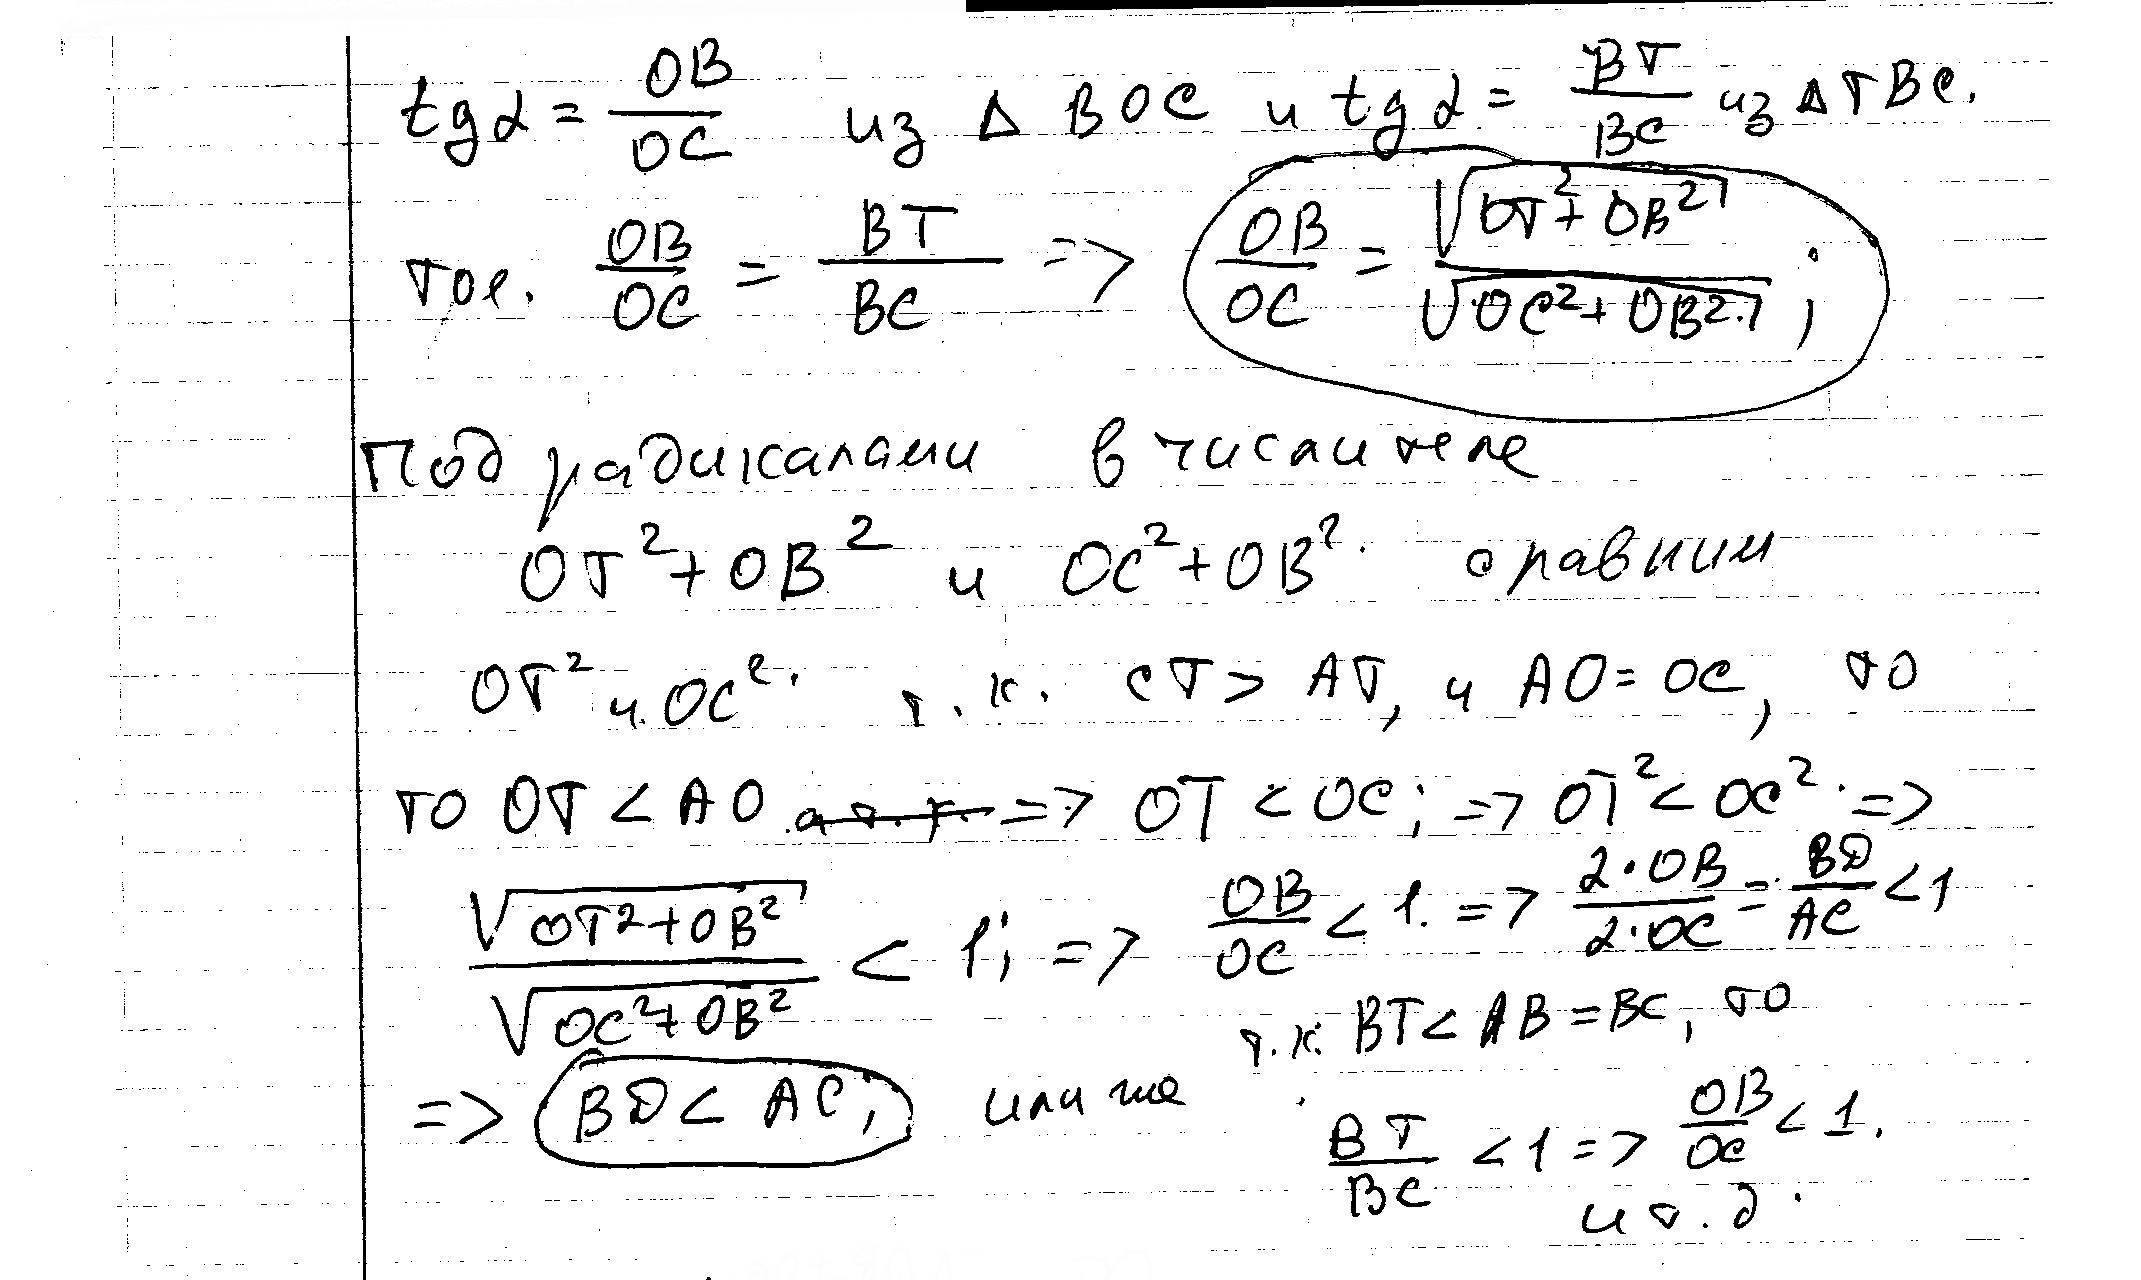 tgα = OB/OC из Δ BOC и tgα = BT/BC из Δ TBC.
тое. OB/OC = BT/BC => OB/OC = √(OT²+OB²)/√(OC²+OB²);
Под радикалами в числителе
OT²+OB² и OC²+OB². сравним
OT² и OC². т.к. CT > AT, и AO = OC, то
то OT < AO => OT < OC; => OT² < OC². =>
√(OT²+OB²)/√(OC²+OB²) < 1; => OB/OC < 1. => 2·OB/2·OC = BD/AC < 1
т.к. BT < AB = BC, то
=> BD < AC; или же
BT/BC < 1 => OB/OC < 1.
и т.д.